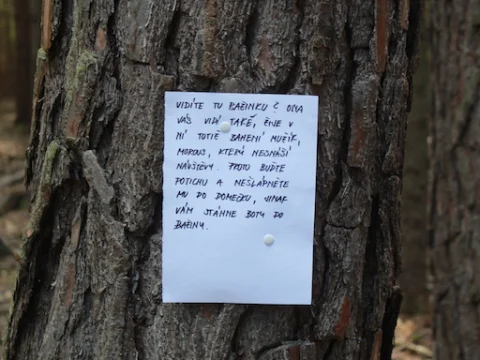 VIDÍTE TU BAŽINKU? ONA
VÁS VIDÍ TAKÉ, ŽIJE V
NÍ TOTIŽ BAHENÍ MUŽÍK,
MOROUS, KTERÝ NESNÁŠÍ
NÁVŠTĚVY. PROTO BUĎTE
POTICHU A NEŠLÁPNĚTE
MU DO DOMEČKU, JINAK
VÁM STÁHNE BOTY DO
BAŽINY.